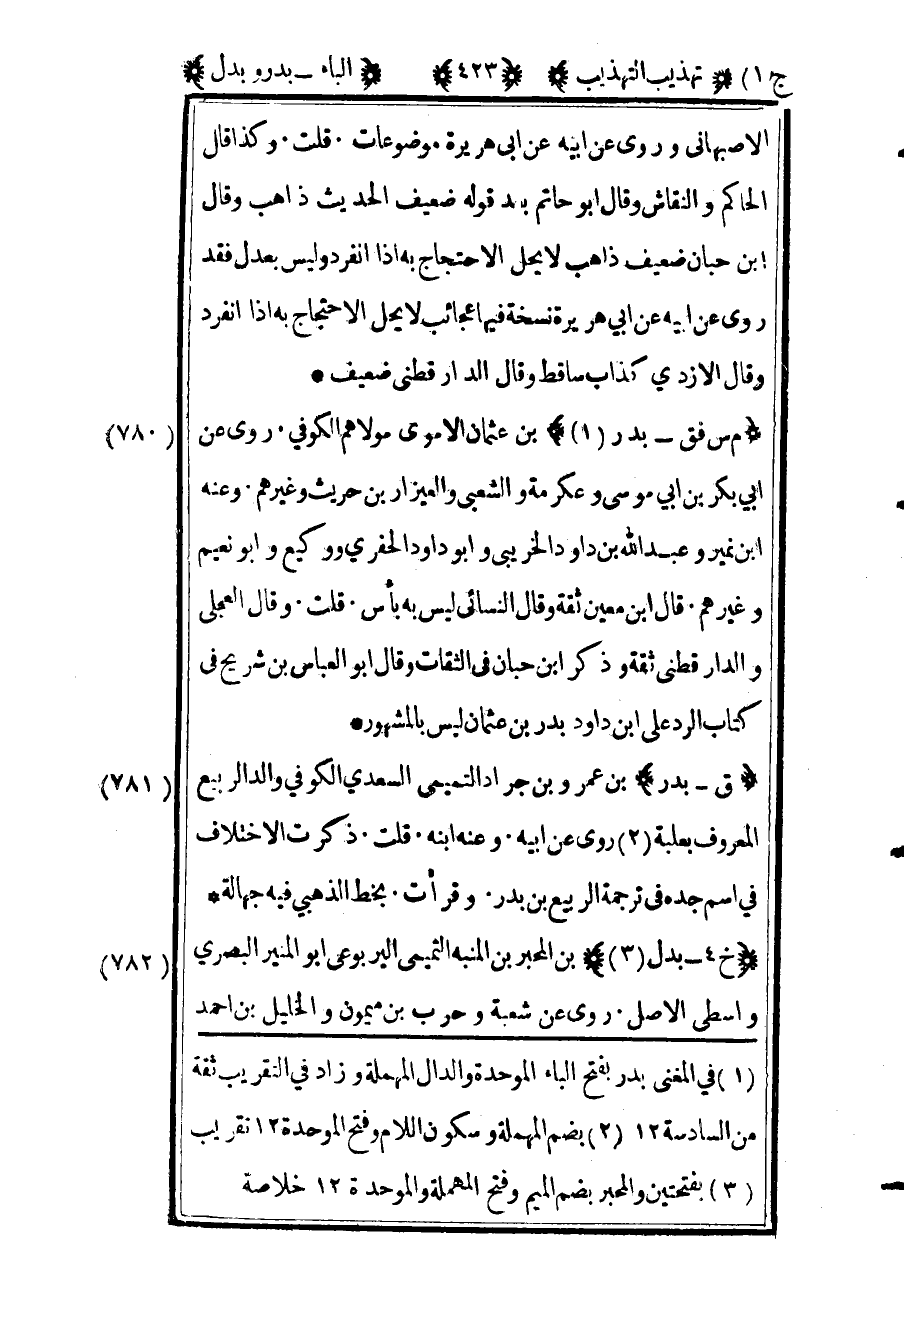 ج(١) ﴿ تهذيب التهذيب ﴾ ﴿ ٤٢٣ ﴾ ﴿ الباء ــ بدر و بدل ﴾
الاصبهانى و روى عن ابيه عن ابى هريرة موضوعات · قلت · وكذا قال
الحاكم و النقاش وقال ابو حاتم بعد قوله ضعيف الحديث ذاهب وقال
ابن حبان ضعيف ذاهب لا يحل الاحتجاج به اذا انفرد وليس بعدل فقد
روى عن ابيه عن ابي هريرة نسخة فيها عجائب لا يحل الاحتجاج به اذا انفرد
وقال الازدي كذاب ساقط وقال الدار قطنى ضعيف *
(٧٨٠) ﴿ م س فق ــ بدر (١) ﴾ بن عثمان الاموى مولاهم الكوفي · روى عن
ابي بكر بن ابي موسى و عكرمة و الشعبي والعيزار بن حريث وغيرهم · وعنه
ابن نمير و عبدالله بن داود الخريبى و ابو داود الحفري ووكيع و ابو نعيم
و غيرهم · قال ابن معين ثقة وقال النسائى ليس به بأس · قلت · وقال العجلى
و الدار قطنى ثقة و ذكر ابن حبان فى الثقات وقال ابو العباس بن شريح فى
كتاب الرد على ابن داود بدر بن عثمان ليس بالمشهور *
(٧٨١) ﴿ ق ــ بدر ﴾ بن عمرو بن جراد التميمى السعدي الكوفي والد الربيع
المعروف بعلبة (٢) روى عن ابيه · وعنه ابنه · قلت · ذكرت الاختلاف
في اسم جده فى ترجمة الربيع بن بدر · وقرأت · بخط الذهبي فيه جهالة *
(٧٨٢) ﴿ خ ٤ ــ بدل (٣) ﴾ بن المحبر بن المنبه التميمى اليربوعى ابو المنير البصري
واسطى الاصل · روى عن شعبة و حرب بن ميمون و الخليل بن احمد
(١) في المغنى بدر بفتح الباء الموحدة والدال المهملة و زاد في التقريب ثقة
من السادسة ١٢ (٢) بضم المهملة و سكون اللام وفتح الموحدة ١٢ تقريب
(٣) بفتحتين والمحبر بضم الميم وفتح المهملة والموحدة ١٢ خلاصة